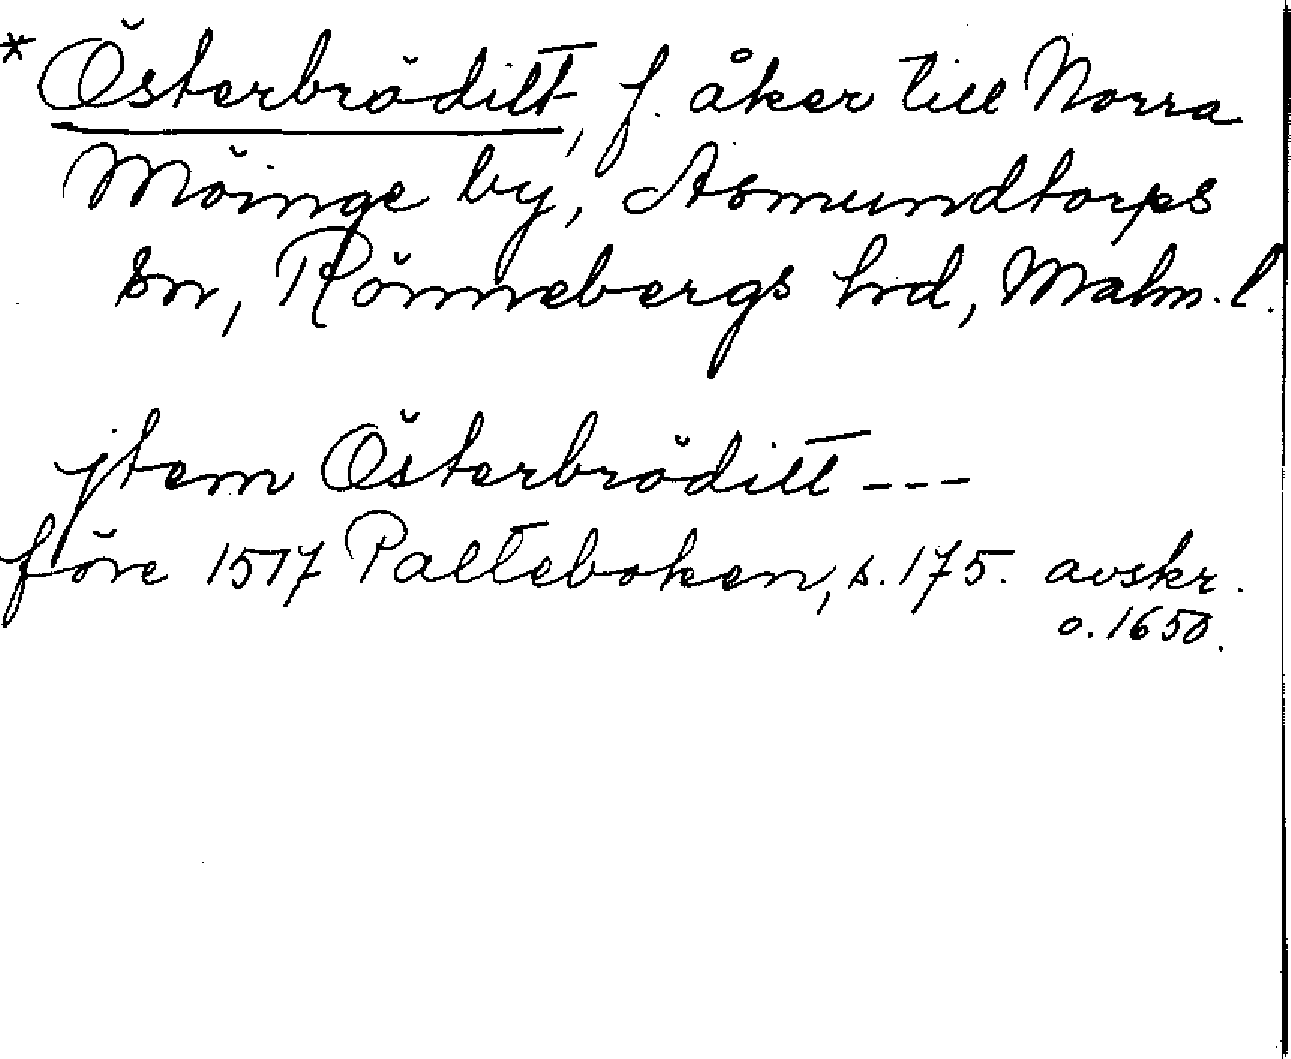 *Österbrödilt, f. åker till Norra
Möinge by, Asmundtorps
sn, Rönnebergs hrd, Malm. l.
jtem Österbrödilt ---
före 1517 Palteboken, s. 175. avskr.
o. 1650.